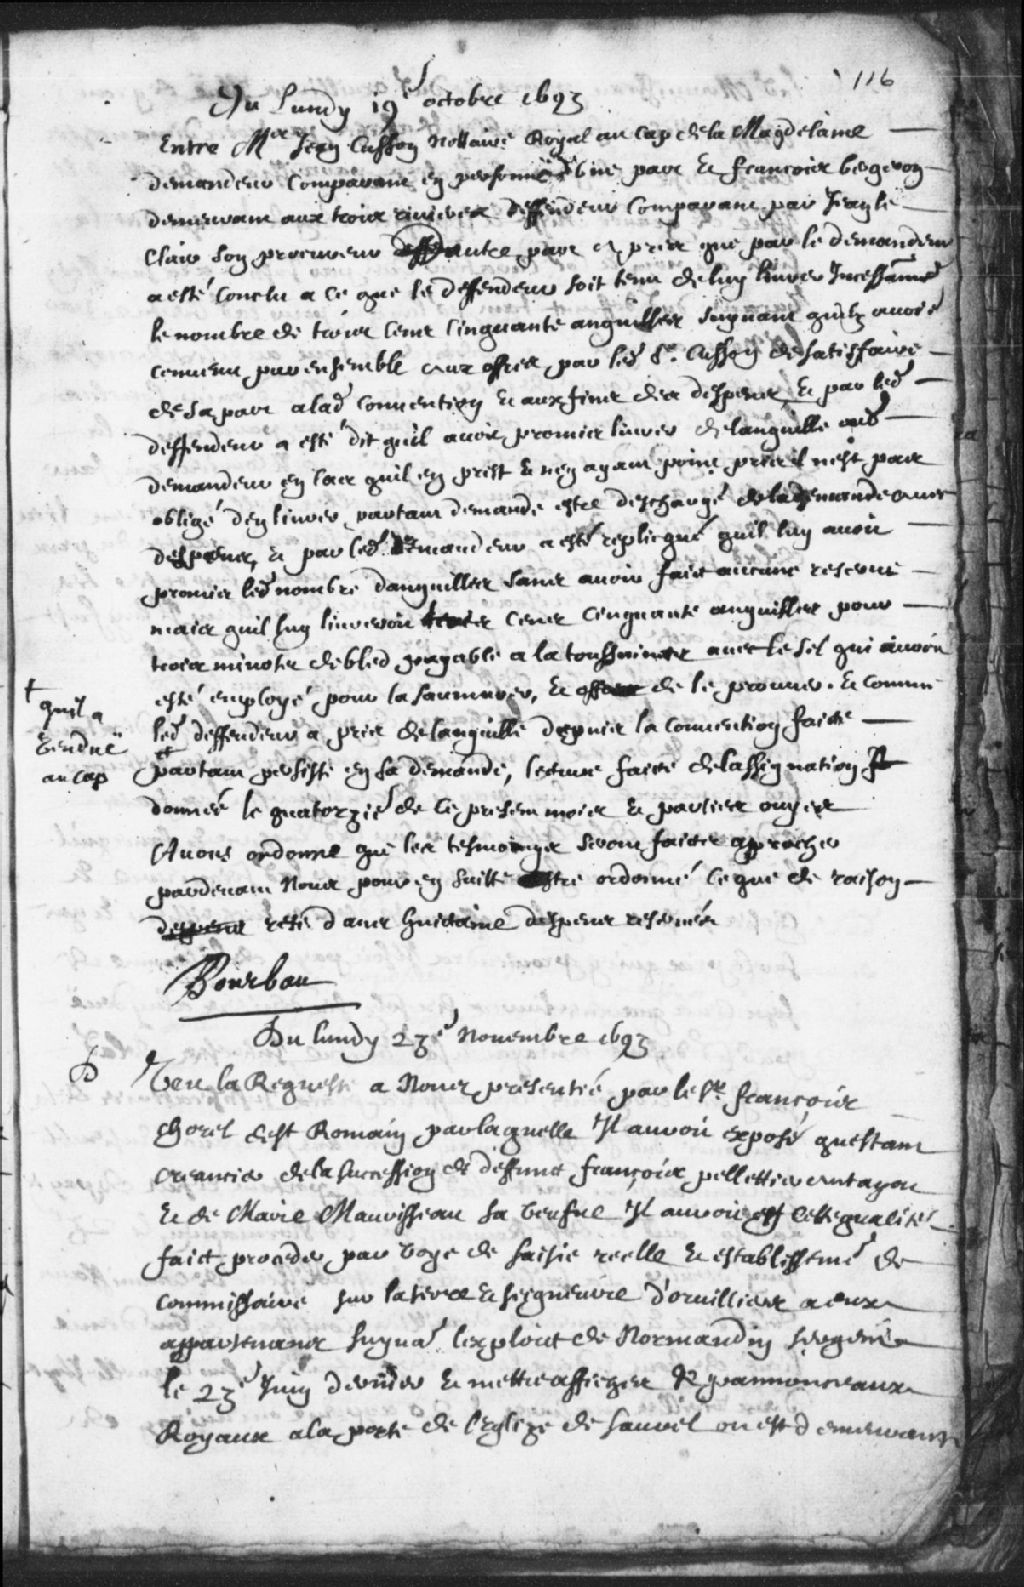 116
Du Lundy 19e octobre 1693
Entre Mre Jean Cusson Nottaire Royal au Cap de la Magdelaine
demandeur Comparant en personne d'une part Et francois bergeron
demeurant aux trois rivieres deffendeur Comparant par Jean le
Clair son procureur d'autre part et pries que par le demandeur
a esté Conclu a ce que le deffendeur soit tenu de luy livrer Incessamt
le nombre de trois Cent Cinquante anguilles suyvant quilz avoiet
convenu par ensemble aux offres par led Sr. Cusson de satisfaire
de sa part a lad Convention Et aux fins des despens, Et par led
deffendeur a esté dit quil avoit promis livrer de languille aud
demandeur en Cas quil en prist Et n'en ayant point pris Il nest pas
obligé d'en livrer partant demande estre deschargé de la demande avec
despens, Et par led. demandeur a esté repliqué quil luy avoit
promis led nombre danguilles sans avoir fait aucune reserve
mais quil luy livreroit trois Cens Cinquante anguilles pour
trois minots de bled payable a la toussaincts avec le sel qui auroit
esté employé pour la saumurer, Et offert de le prouver. Et comme
led deffendeur a pris de languille depuis la Convention faicte
† quil a
vendue
au Cap
† partant persiste en sa demande, lecture faicte de lassignation
donnée le quatorzie de ce present moies Et parties ouyes
Avons ordonné que les tesmoings seront faictes approcher
pardevant Nous pour en suitte estre ordonné ce que de raison
despens reso dans huictaine despens reservés
Bourbau
Du lundy 23e Novembre 1693
D
Veu la Requeste a Nous presentée par le Sr francois
Chorel de st Romain par laquelle Il auroit exposé questant
Creancier de la succession de deffunct françois pelletier antayou
Et de Marie Mauvisseau sa veufue Il auroit en cette qualité
faict proceder par voye de saisie reelle Et establissemt de
Commissaire sur la terre Et seigneurie d'orvilliers a eux
appartenant suyvat lexploict de Normandin sergent
le 23e Juin dernier Et mettre affiches Et pannonceaux
Royaux a la porte de leglize de saurel ou est demeurant